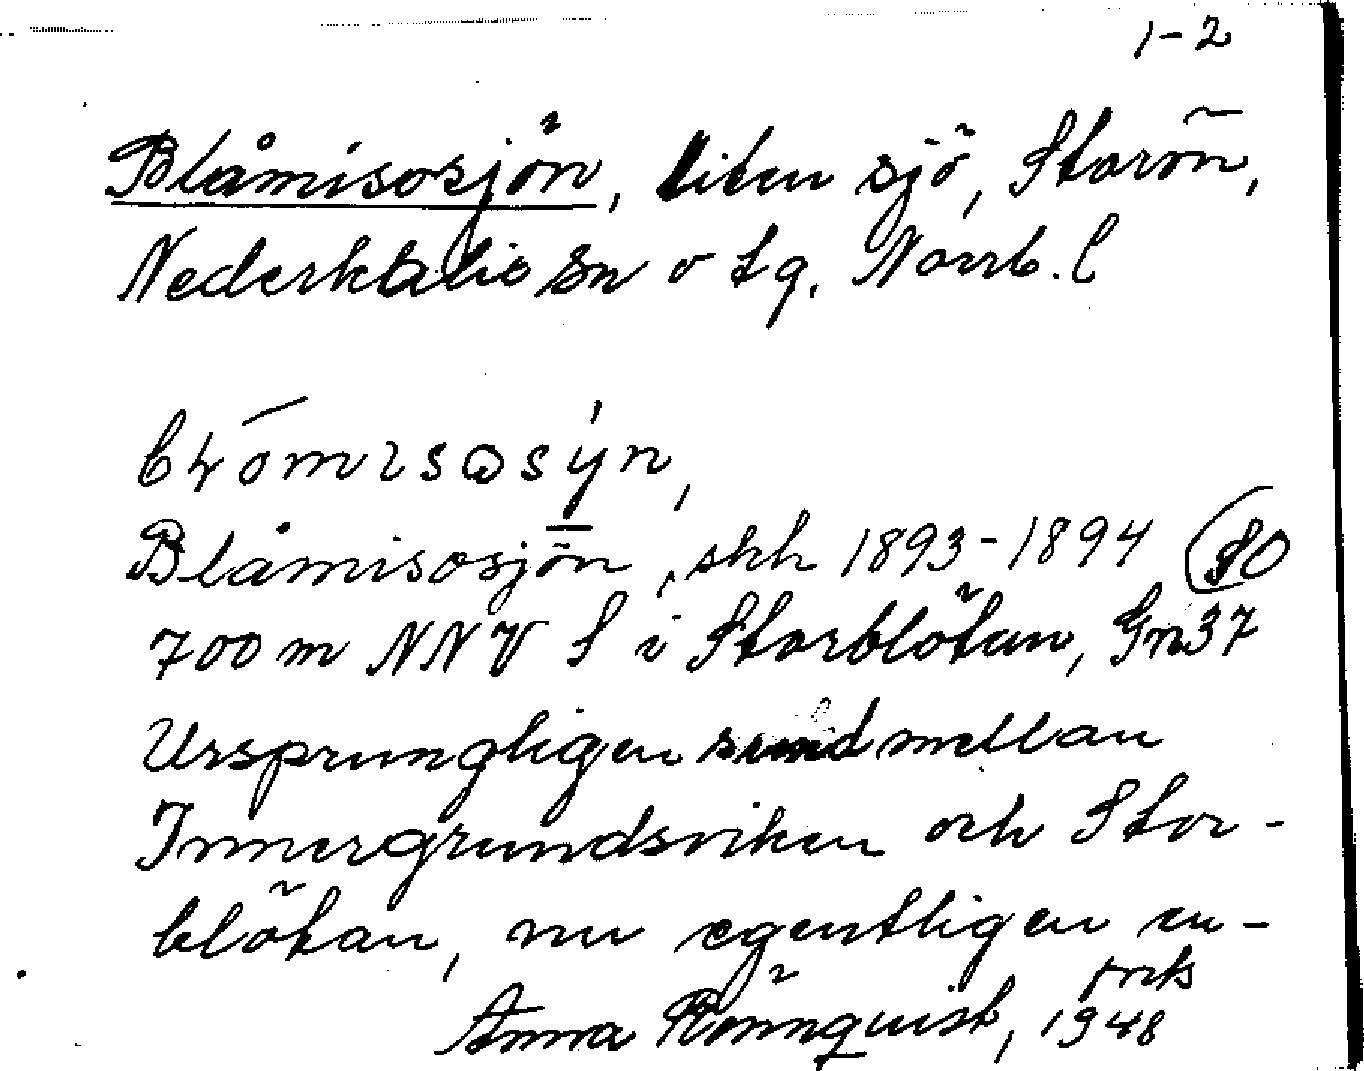 1-2
Blåmisosjön, liten sjö, Storön,
Nederkalix sn o tg. Norrb. l
Blåmisosjön, skh 1893-1894 80
700 m NNV S i Storblötan, Gn 37
Ursprungligen sund mellan
Innergrundsviken och Stor-
blötan, nu egentligen en-
Anna Rönnquist, 1948